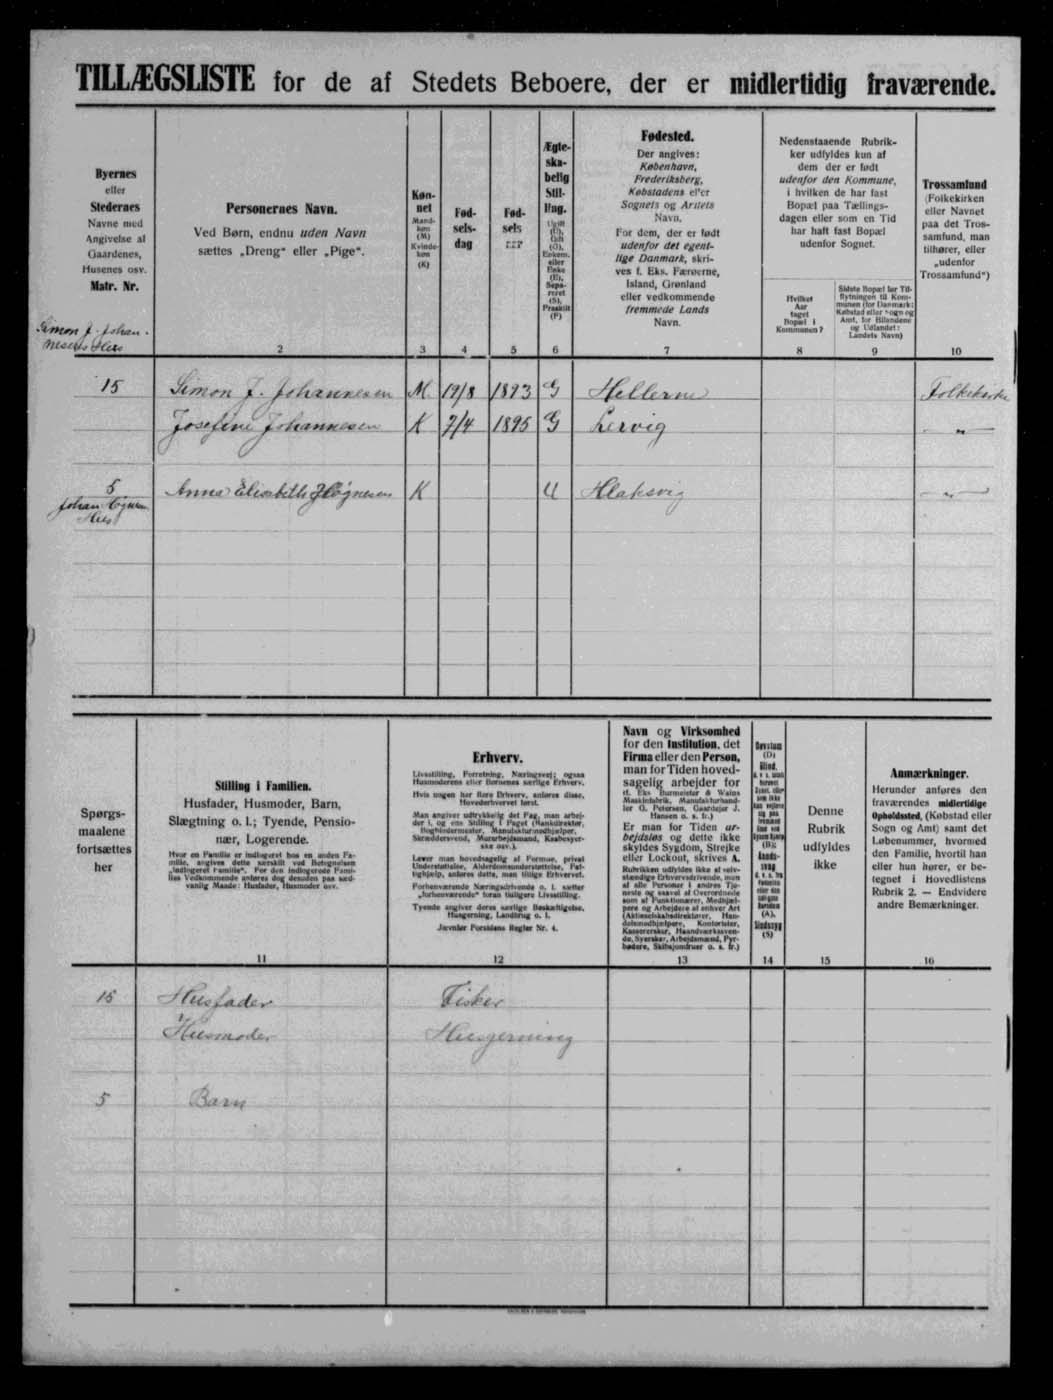 TILLÆGSLISTE for de af Stedets Beboere, der er midlertidig fraværende.
Byernes
eller
Stedernes
Navne med
Angivelse af
Gaardenes,
Husenes osv.
Matr. Nr.
Simon J. Johan-
nesens Hus
Personernes Navn.
Ved Børn, endnu uden Navn
sættes „Dreng“ eller „Pige“.
2
Køn-
net
Mand-
køn
(M)
Kvinde-
køn
(K)
3
Fød-
sels-
dag
4
Fød-
sels
5
Ægte-
ska-
belig
Stil-
ling.
Ugift
(U),
Gift
(G),
Enkem.
eller
Enke
(E),
Sepa-
reret
(S),
Fraskilt
(F)
6
Fødested.
Der angives:
København,
Frederiksberg,
Købstadens eller
Sognets og Amtets
Navn.
For dem, der er født
udenfor det egent-
lige Danmark, skri-
ves f. Eks. Færøerne,
Island, Grønland
eller vedkommende
fremmede Lands
Navn.
7
Nedenstaaende Rubrik-
ker udfyldes kun af
dem der er født
udenfor den Kommune,
i hvilken de har fast
Bopæl paa Tællings-
dagen eller som en Tid
har haft fast Bopæl
udenfor Sognet.
Hvilket
Aar
taget
Bopæl i
Kommunen?
8
Sidste Bopæl før Til-
flytningen til Kom-
munen (for Danmark:
Købstad eller Sogn og
Amt, for Bilandene
og Udlandet:
Landets Navn)
9
Trossamfund
(Folkekirken
eller Navnet
paa det Tros-
samfund, man
tilhører, eller
„udenfor
Trossamfund“)
10
15 Simon J. Johannesen M. 19/8 1893 G Hellerne Folkekirke
Josefine Johannesen K 7/4 1895 G Lervig — „ —
5 Anna Elisabeth Høgnesen K U Klaksvig — „ —
Johan
Hus
Spørgs-
maalene
fortsættes
her
Stilling i Familien.
Husfader, Husmoder, Barn,
Slægtning o. l.; Tyende, Pensio-
nær, Logerende.
Hvor en Familie er indlogeret hos en anden Fa-
milie, angives dette særskilt ved Betegnelsen
„indlogeret Familie“. For den indlogerede Fami-
lies Vedkommende anføres dog desuden paa sæd-
vanlig Maade: Husfader, Husmoder osv.
11
Erhverv.
Livsstilling, Forretning, Næringsvej; ogsaa
Husmoderens eller Børnenes særlige Erhverv.
Hvis nogen har flere Erhverv, anføres disse,
Hovederhvervet først.
Man angiver udtrykkelig det Fag, man arbej-
der i, og ens Stilling i Faget (Bankdirektør,
Bogbindermester, Manufakturmedhjælper,
Skræddersvend, Murarbejdsmand, Knabesyer-
ske osv.).
Lever man hovedsagelig af Formue, privat
Understøttelse, Alderdomsunderstøttelse, Fat-
tighjælp, anføres dette, man tillige Erhvervet.
Forhenværende Næringsdrivende o. l. sætter
„forhenværende“ foran tidligere Livsstilling.
Tyende angiver deres særlige Beskæftigelse,
Husgerning, Landbrug o. l.
Jævnfør Forsidens Regler Nr. 4.
12
Navn og Virksomhed
for den Institution, det
Firma eller den Person,
man for Tiden hoved-
sagelig arbejder for
(f. Eks. Burmeister & Wains
Maskinfabrik, Manufakturhand-
ler G. Petersen, Gaardejer J.
Hansen o. s. fr.)
Er man for Tiden ar-
bejdsløs og dette ikke
skyldes Sygdom, Strejke
eller Lockout, skrives A.
Rubrikken udfyldes ikke af selv-
stændige Erhvervsdrivende, men
af alle Personer i andres Tje-
neste og saavel af Overordnede
som af Funktionærer, Medhjæl-
pere og Arbejdere af enhver Art
(Aktieselskabsdirektører, Han-
delsmedhjælpere, Kontorister,
Kassererskær, Haandværkssven-
de, Syersker, Arbejdsmænd, Fyr-
bødere, Skibsjomfruer o. s. fr.)
13
Døvstum
(D)
Blind,
(B);
Aands-
svag
(A),
Sindssyg
(S)
14
Denne
Rubrik
udfyldes
ikke
15
Anmærkninger.
Herunder anføres den
fraværendes midlertidige
Opholdssted, (Købstad eller
Sogn og Amt) samt det
Løbenummer, hvormed
den Familie, hvortil han
eller hun hører, er be-
tegnet i Hovedlistens
Rubrik 2. — Endvidere
andre Bemærkninger.
16
15 Husfader Fisker
Husmoder Husgerning
5 Barn